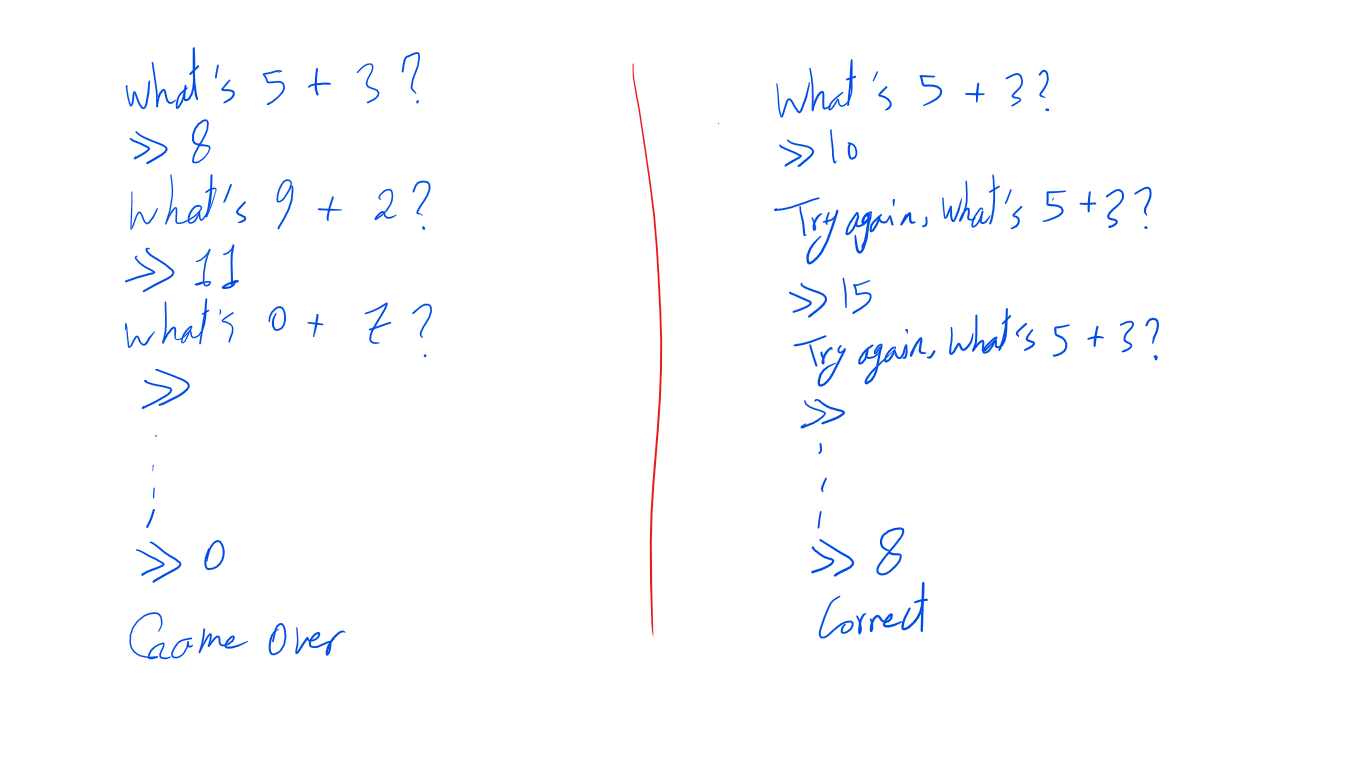 What's 5 + 3?
>> 8
What's 9 + 2?
>> 11
What's 0 + 7?
>>
>> 0
Game Over
What's 5 + 3?
>> 10
Try again, What's 5 + 3?
>> 15
Try again, What's 5 + 3?
>>
>> 8
Correct